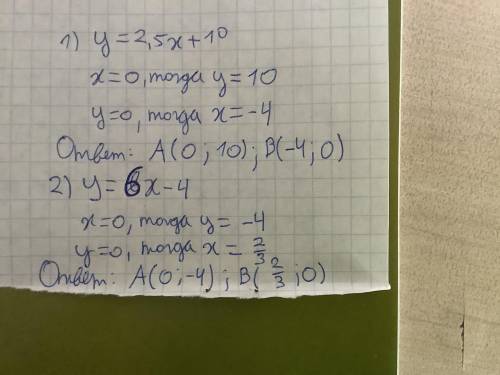 1) y = 2,5x + 10
x = 0, тогда y = 10
y = 0, тогда x = -4
Ответ: A(0; 10); B(-4; 0)
2) y = 6x - 4
x = 0, тогда y = -4
y = 0, тогда x = 2/3
Ответ: A(0; -4); B(2/3; 0)